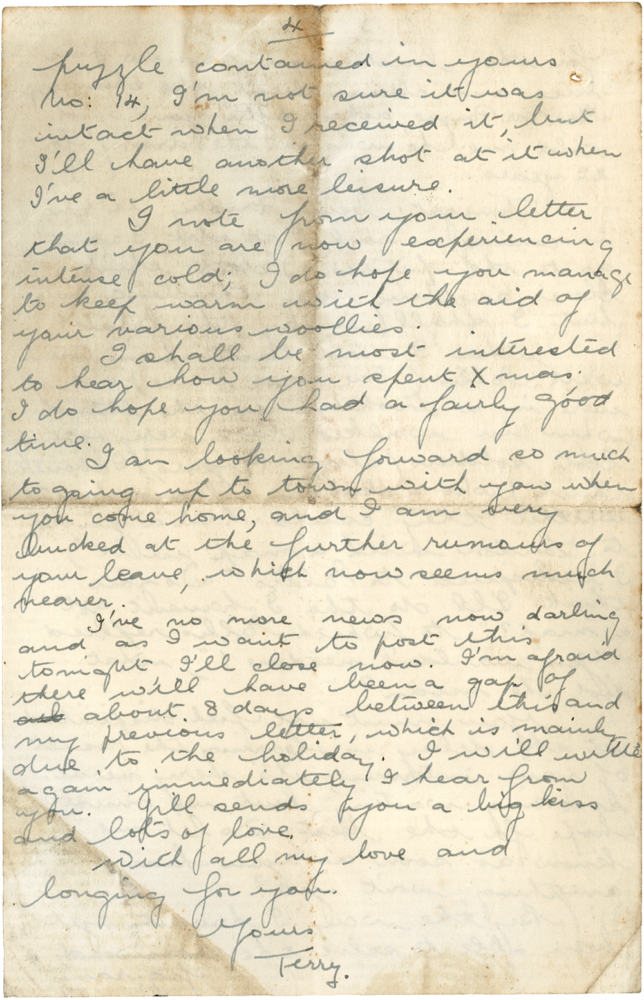 4
puzzle contained in yours
No: 14, I'm not sure it was
intact when I received it, but
I'll have another shot at it when
I've a little more leisure.
I note from your letter
that you are now experiencing
intense cold; I do hope you manage
to keep warm with the aid of
your various woollies.
I shall be most interested
to hear how you spent Xmas.
I do hope you had a fairly good
time.
I am looking forward so much
to going up to town with you when
you come home, and I am very
bucked at the further rumours of
your leave, which now seems much
nearer.
I've no more news now darling
and as I want to post this
tonight I'll close now. I'm afraid
there will have been a gap of
about 8 days between this and
my previous letter, which is mainly
due to the holiday. I will write
again immediately I hear from
you. Jill sends you a big kiss
and lots of love.
With all my love and
longing for you.
Yours
Terry.